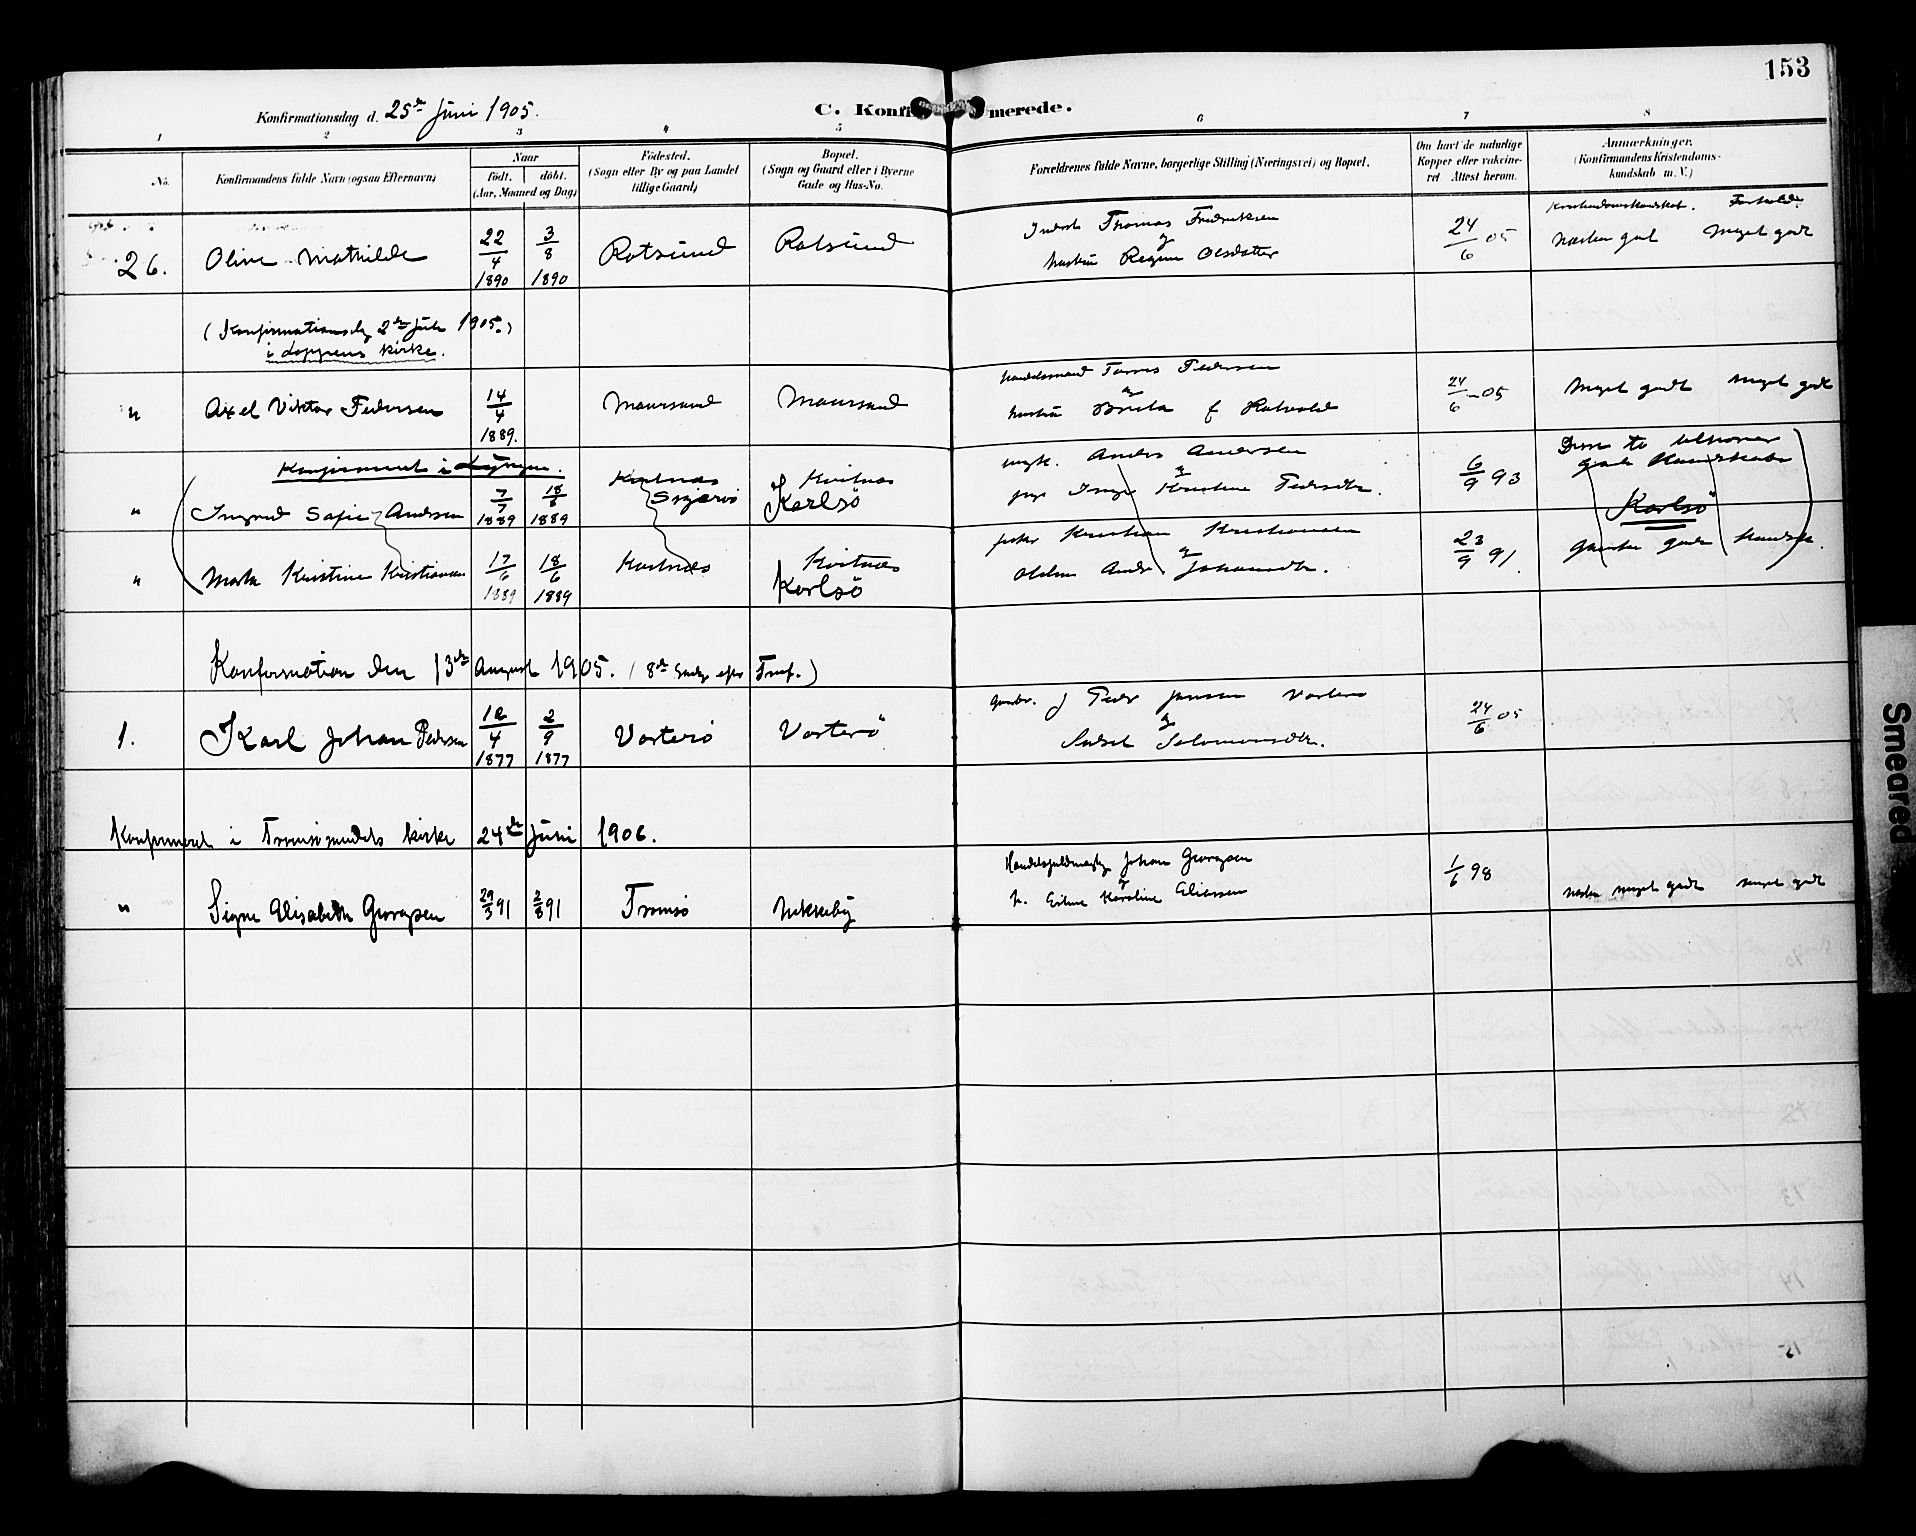 153
Konfirmationsdag d. 25de Juni 1905.
C. Konfirmerede.
1 2 3 4 5 6 7 8
No.
Konfirmandens fulde Navn (ogsaa Efternavn)
Naar
født. døbt.
(Aar, Maaned og Dag)
Fødested.
(Sogn eller By og paa Landet
tillige Gaard)
Bopæl.
(Sogn og Gaard eller i Byerne
Gade og Hus-No.
Forældrenes fulde Navne, borgerlige Stilling (Næringsvei) og Bopæl.
Om havt de naturlige
Kopper eller vakcine-
ret Attest herom.
Anmærkninger.
(Konfirmandens Kristendoms-
kundskab m. V.)
Kristendomskundskab. Forhold
26. Olive Mathilde 22/4 1890 3/8 1890 Rotsund Rotsund
Inderst Thomas Fredriksen
og
hustru Regine Olsdatter
24/6 05 Næsten godt Meget godt
(Konfirmationsdag 2den Juli 1905.)
i Loppens kirke.
" Axel Viktor Pedersen 14/4 1889. Maursund Maursund
Handelsmand Pedersen
og
hustru
24/6 05 Meget godt Meget godt
Konfirmeret i Lyngen.
" Ingvod Sofie Andersen 7/7 1889 18/8 1889 Kvitnes Karlsö
Anders Andersen
og
Kristine Pedersdtr.
6/9 93
Karlsö
" Marta Kristine Kristiansen 17/6 1889 18/6 1889 Kvitnæs Karlsö
fisker Kristian Kristiansen
og
Johansdtr.
23/9 91. godt
Konformation den 13de August 1905. (8de Søndag efter Tref.)
1. Karl Johan Pedersen 12/4 1877 2/9 1877 Vorterö Vorterö
Peder Jensen Vorterö
og
Salomonsdtr.
24/6 05
Konfirmeret i Tromsøsundets kirke 24de Juni 1906.
" Signe Elisabeth Georgsen 29/3 91 2/8 91 Tromsö Nikkeby
Handelsfuldmægtig Johan Georgsen
og
h. Karoline Eliassen
1/6 98 næsten meget godt meget godt
Smeared